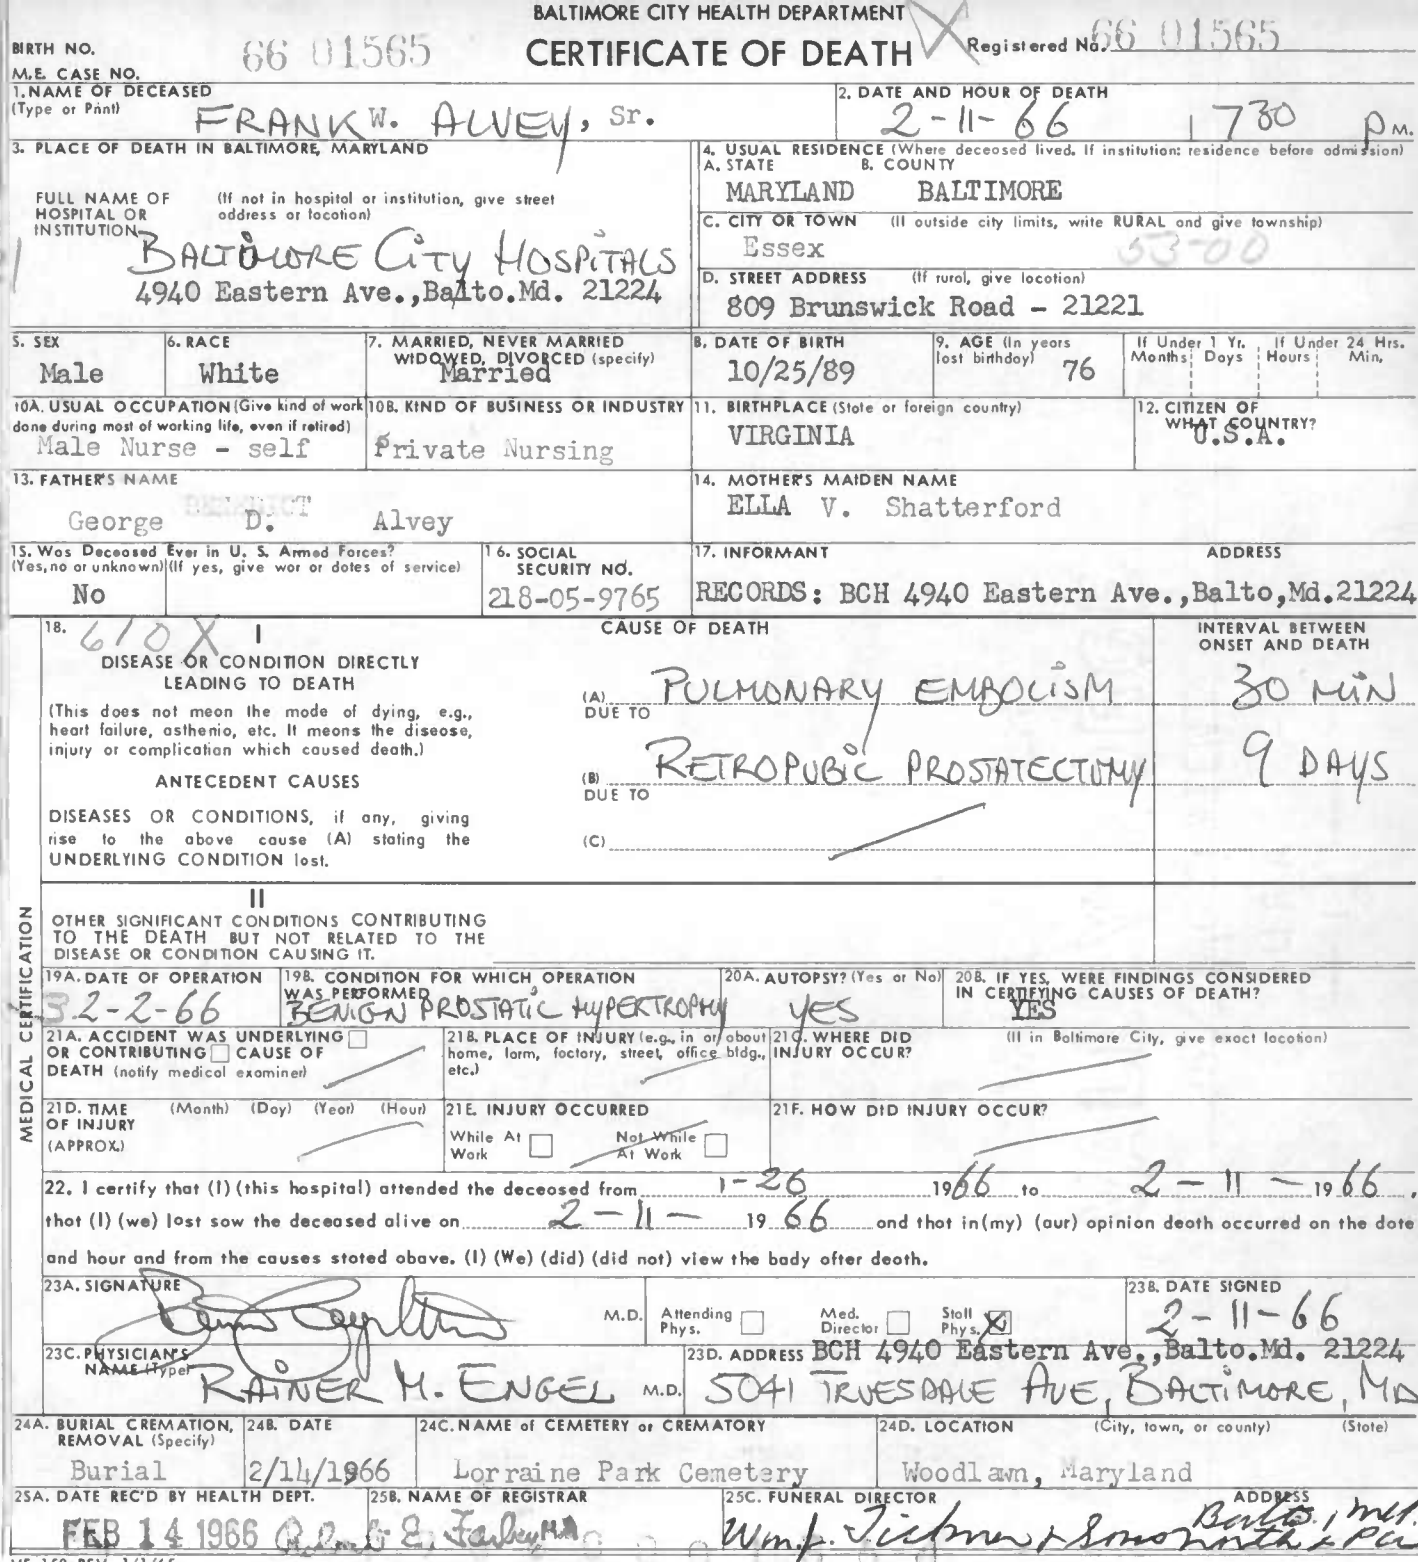 BALTIMORE CITY HEALTH DEPARTMENT
BIRTH NO. 66 01565 CERTIFICATE OF DEATH Registered No. 66 01565
M.E. CASE NO.
1. NAME OF DECEASED
(Type or Print) FRANK W. ALVEY, Sr.
2. DATE AND HOUR OF DEATH
2-11-66 730 P M.
3. PLACE OF DEATH IN BALTIMORE, MARYLAND
FULL NAME OF HOSPITAL OR INSTITUTION
(If not in hospital or institution, give street address or location)
BALTIMORE CITY HOSPITALS
4940 Eastern Ave.,Balto.Md. 21224
4. USUAL RESIDENCE (Where deceased lived. If institution: residence before admission)
A. STATE B. COUNTY
MARYLAND BALTIMORE
C. CITY OR TOWN (If outside city limits, write RURAL and give township)
Essex 53-00
D. STREET ADDRESS (If rural, give location)
809 Brunswick Road - 21221
5. SEX
Male
6. RACE
White
7. MARRIED, NEVER MARRIED
WIDOWED, DIVORCED (specify)
Married
8. DATE OF BIRTH
10/25/89
9. AGE (In years
last birthday) 76
If Under 1 Yr. If Under 24 Hrs.
Months Days Hours Min.
10A. USUAL OCCUPATION (Give kind of work
done during most of working life, even if retired)
Male Nurse - self
10B. KIND OF BUSINESS OR INDUSTRY
Private Nursing
11. BIRTHPLACE (State or foreign country)
VIRGINIA
12. CITIZEN OF
WHAT COUNTRY?
U.S.A.
13. FATHER'S NAME
George D. Alvey
14. MOTHER'S MAIDEN NAME
ELLA V. Shatterford
15. Was Deceased Ever in U. S. Armed Forces?
(Yes, no or unknown) (If yes, give war or dates of service)
No
16. SOCIAL
SECURITY NO.
218-05-9765
17. INFORMANT ADDRESS
RECORDS: BCH 4940 Eastern Ave.,Balto,Md.21224
18. 610X I
CAUSE OF DEATH
INTERVAL BETWEEN
ONSET AND DEATH
DISEASE OR CONDITION DIRECTLY
LEADING TO DEATH
(This does not mean the mode of dying, e.g.,
heart failure, asthenia, etc. It means the disease,
injury or complication which caused death.)
(A) PULMONARY EMBOLISM 30 MIN
DUE TO
ANTECEDENT CAUSES
(B) RETROPUBIC PROSTATECTOMY 9 DAYS
DUE TO
DISEASES OR CONDITIONS, if any, giving
rise to the above cause (A) stating the
UNDERLYING CONDITION last.
(C)
II
OTHER SIGNIFICANT CONDITIONS CONTRIBUTING
TO THE DEATH BUT NOT RELATED TO THE
DISEASE OR CONDITION CAUSING IT.
MEDICAL CERTIFICATION
19A. DATE OF OPERATION
2-2-66
19B. CONDITION FOR WHICH OPERATION
WAS PERFORMED
BENIGN PROSTATIC HYPERTROPHY
20A. AUTOPSY? (Yes or No)
YES
20B. IF YES, WERE FINDINGS CONSIDERED
IN CERTIFYING CAUSES OF DEATH?
YES
21A. ACCIDENT WAS UNDERLYING
OR CONTRIBUTING CAUSE OF
DEATH (notify medical examiner)
21B. PLACE OF INJURY (e.g., in or about
home, farm, factory, street, office bldg.,
etc.)
21C. WHERE DID
INJURY OCCUR?
(If in Baltimore City, give exact location)
21D. TIME (Month) (Day) (Year) (Hour)
OF INJURY
(APPROX.)
21E. INJURY OCCURRED
While At Work Not While At Work
21F. HOW DID INJURY OCCUR?
22. I certify that (I) (this hospital) attended the deceased from 1-26 1966 to 2-11-1966,
that (I) (we) last saw the deceased alive on 2-11- 1966 and that in (my) (our) opinion death occurred on the date
and hour and from the causes stated above. (I) (We) (did) (did not) view the body after death.
23A. SIGNATURE
M.D. Attending Phys. Med. Director Staff Phys. X
23B. DATE SIGNED
2-11-66
23C. PHYSICIAN'S
NAME (Type)
RAINER M. ENGEL M.D.
23D. ADDRESS BCH 4940 Eastern Ave.,Balto.Md. 21224
5041 TRUESDALE AVE, BALTIMORE, MD
24A. BURIAL CREMATION,
REMOVAL (Specify)
Burial
24B. DATE
2/14/1966
24C. NAME of CEMETERY or CREMATORY
Lorraine Park Cemetery
24D. LOCATION (City, town, or county) (State)
Woodlawn, Maryland
25A. DATE REC'D BY HEALTH DEPT.
FEB 14 1966
25B. NAME OF REGISTRAR
Robert E. Farber M.D.
25C. FUNERAL DIRECTOR ADDRESS
Wm. J. Tickner & Sons North & Pa
Balto., Md.